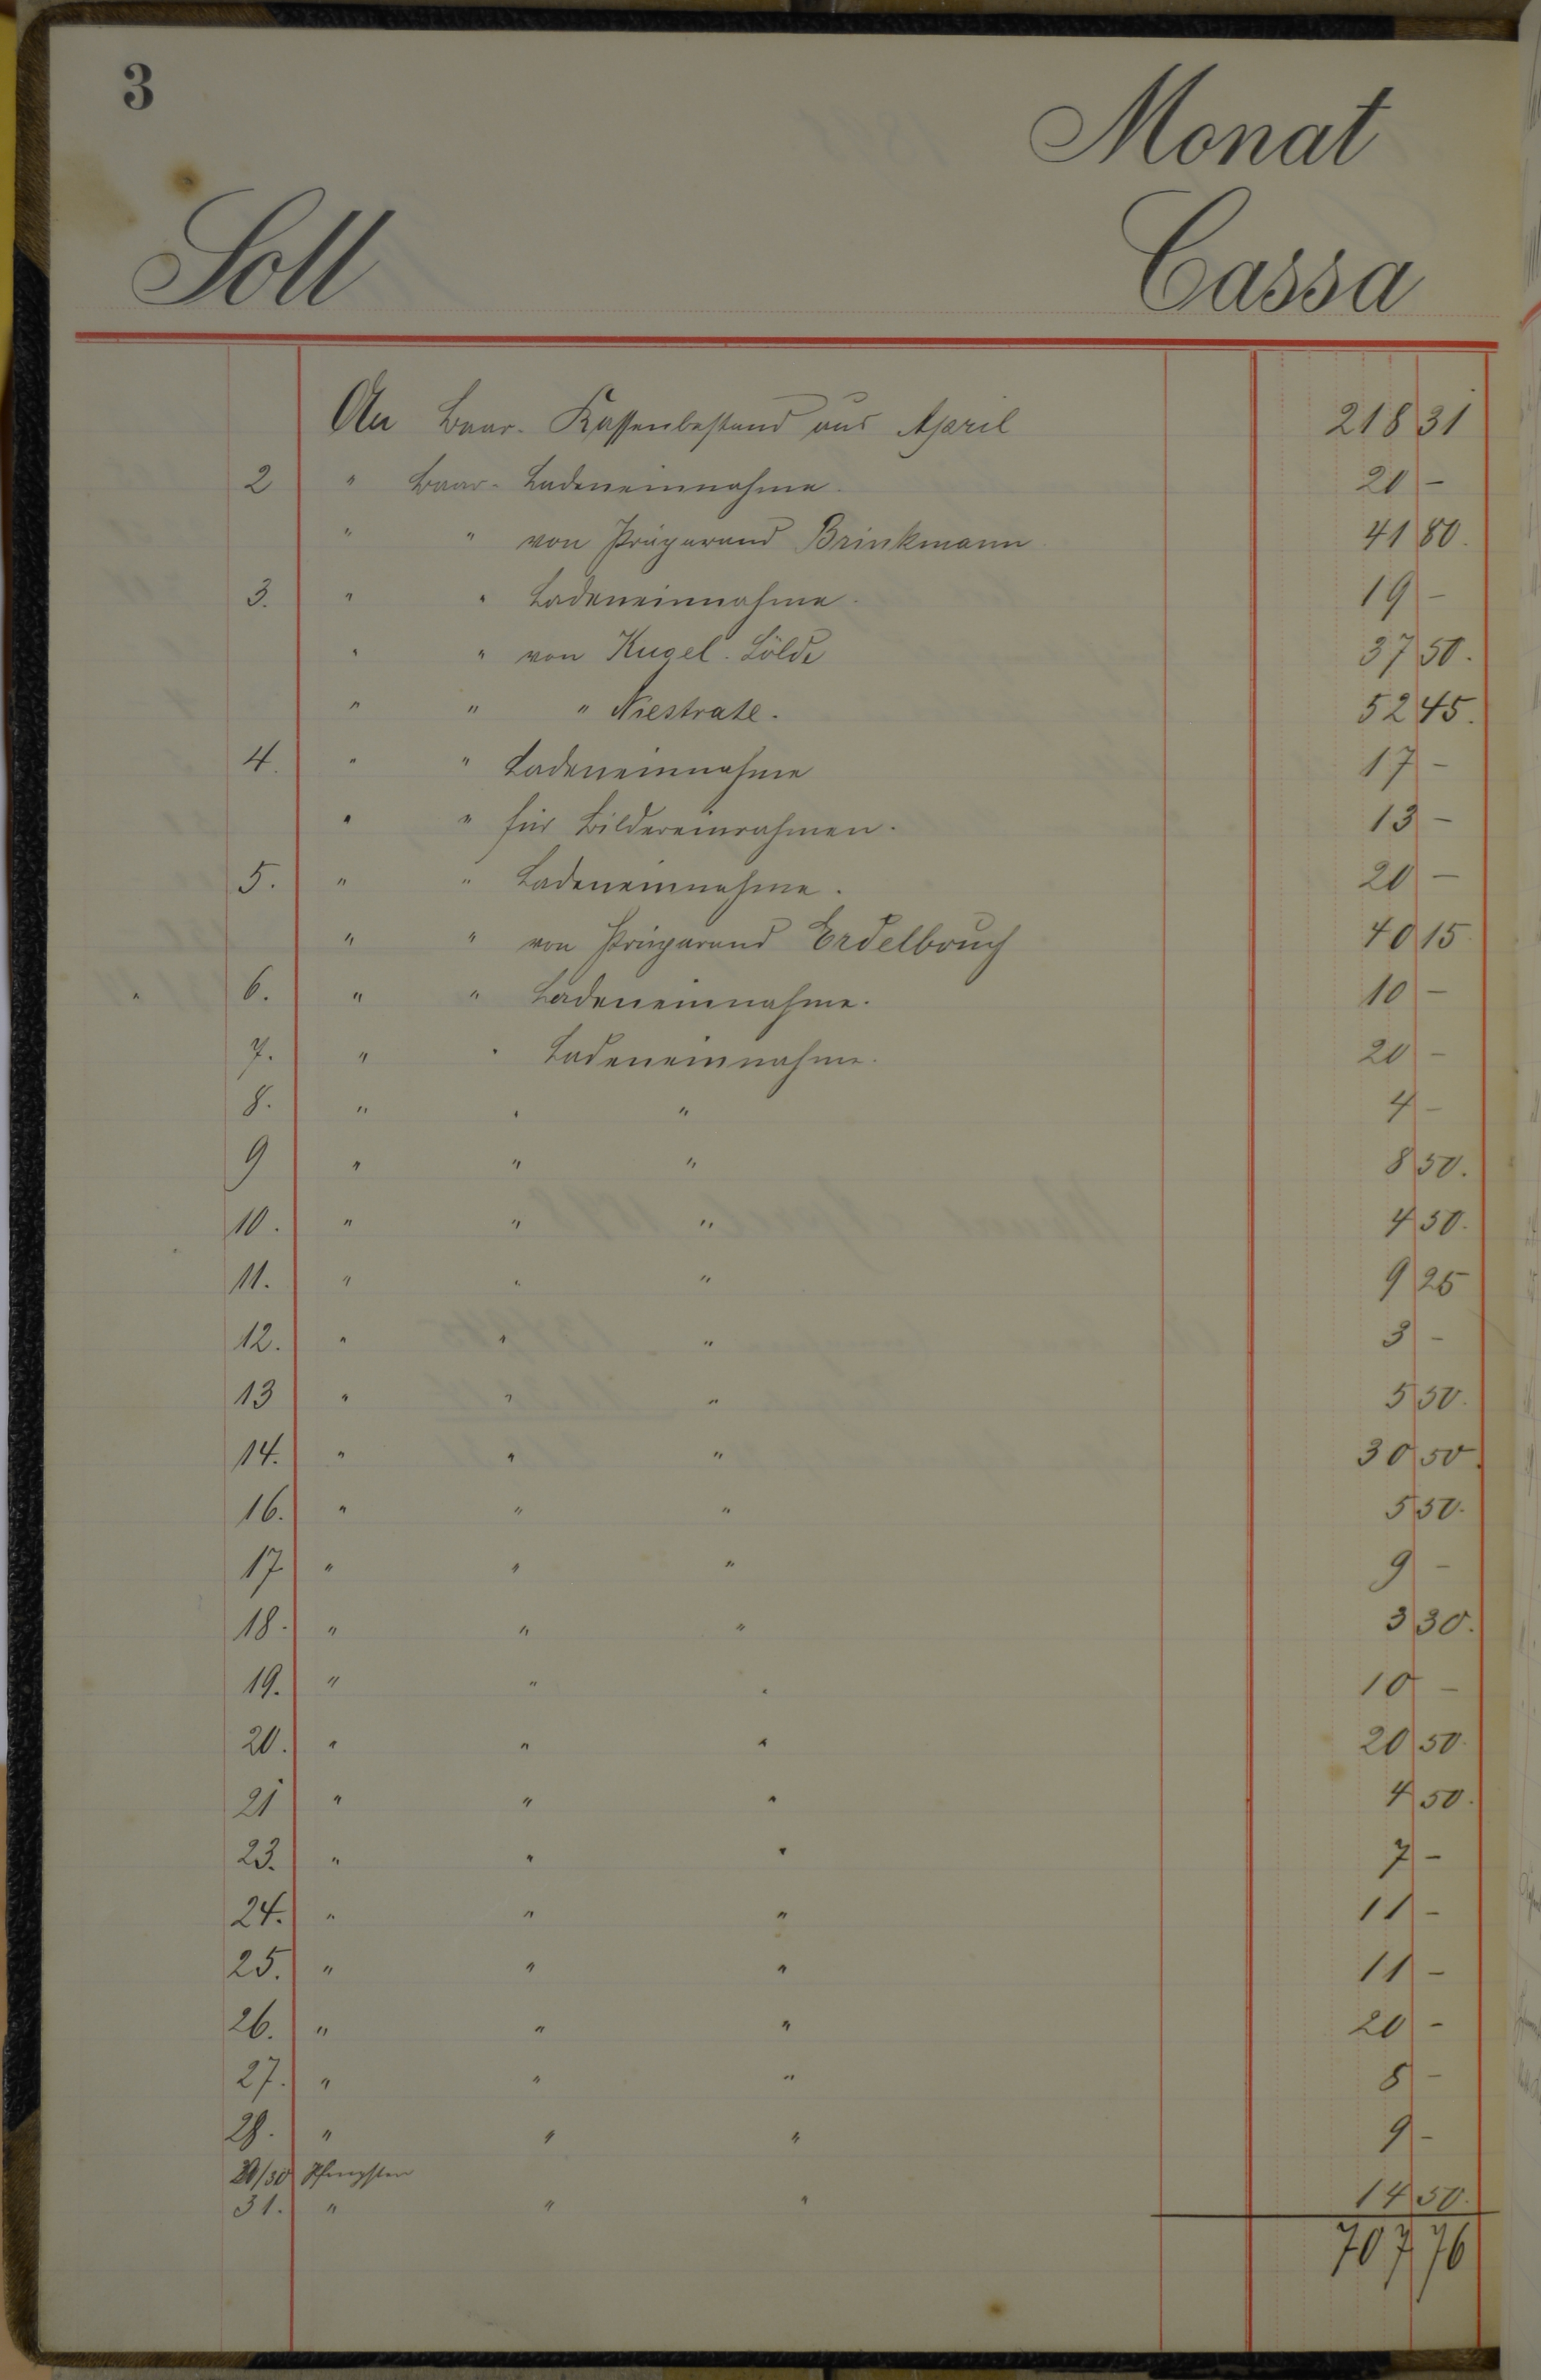 3
Monat
Soll Cassa
An Baar-Kassenbestand aus April 218 31
2 " Baar-Ladeneinnahme. 20 –
" " von Präparand Brinkmann 41 80.
3. " " Ladeneinnahme. 19 –
" " von Kugel. Sölde 37 50.
" " " Niestrate. 52 45.
4. " " Ladeneinnahme 17 –
" " für Bildereinrahmen. 13 –
5. " " Ladeneinnahme. 20 –
" " von Präparand Erdelbruch 40 15
6. " " Ladeneinnahme. 10 –
7. " " Ladeneinnahme. 20 –
8. " " " 4 –
9 " " " 8 50.
10. " " " 4 50.
11. " " " 9 25
12. " " " 3 –
13 " " " 5 50.
14. " " " 30 50.
16. " " " 5 50.
17. " " " 9 –
18. " " " 3 30.
19. " " " 10 –
20. " " " 20 50.
21 " " " 4 50.
23. " " " 7 –
24. " " " 11 –
25. " " " 11 –
26. " " " 20 –
27. " " " 8 –
28. " " " 9 –
29/30 Pfingsten
31. " " " 14 50.
707 76